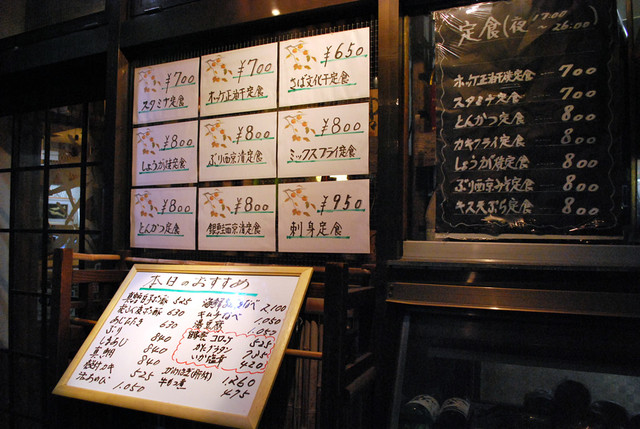 ¥700
スタミナ定食
¥700
ホッケ正油干定食
¥650
さば文化干定食
¥800
しょうが焼定食
¥800
ぶり西京漬定食
¥800
ミックスフライ定食
¥800
とんかつ定食
¥800
銀鮭西京漬定食
¥950
刺身定食
定食(夜 17:00
~26:00)
ホッケ正油干焼定食 700
スタミナ定食 700
とんかつ定食 800
カキフライ定食 800
しょうが焼定食 800
ぶり西京みそ定食 800
キス天ぷら定食 800
本日のおすすめ
525
630
あじたたき 630
ぶり 840
しまあじ 840
真鯛 840
525
1.050
海鮮 なべ 2.100
キムチなべ 1.050
湯豆腐 1.050
コロッケ 525
カキグラタン 735
いか塩辛 420
1.260
牛もつ煮 475